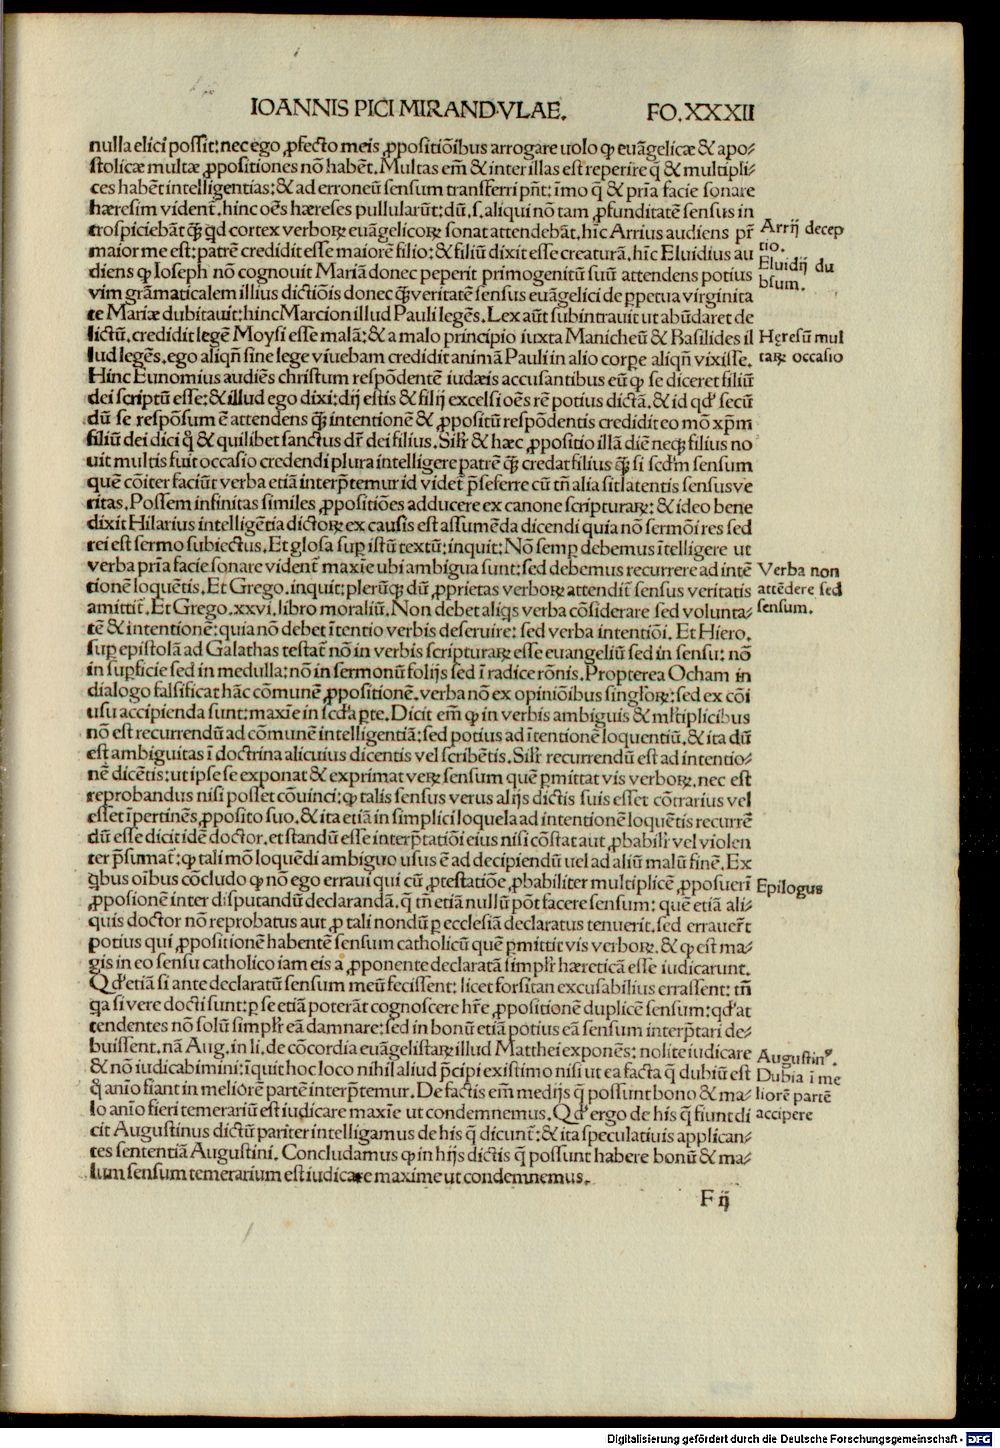 IOANNIS PICI MIRANDVLAE. FO.XXXII
nulla elici possit: nec ego ꝓfecto meis ꝓpositiōibus arrogare uolo ꝙ euāgelicæ & apo-
stolicæ multæ ꝓpositiones nō habēt. Multas em̄ & inter illas est reperire q̄ & multipli-
ces habēt intelligentias: & ad erroneū sensum transferri pn̄t: īmo q̄ & prīa facie sonare
hæresim vident̄. hinc oēs hæreses pullularūt: dū .s. aliqui nō tam ꝓfunditatē sensus in
trospiciebāt ꝗ̄ꝫ ꝗd cortex verboꝝ euāgelicoꝝ sonat attendebāt. hīc Arrius audiens pr̄
maior me est: patrē credidit esse maiorē filio: & filiū dixit esse creaturā. hīc Eluidius au
diens ꝙ Ioseph nō cognouit Mariā donec peperit primogenitū suū attendens potius
vim grāmaticalem illius dictiōis donec ꝗ̄ꝫ veritatē sensus euāgelici de ꝑpetua virginita
te Mariæ dubitauit: hinc Marcion illud Pauli legēs. Lex aūt subintrauit ut abūdaret de
lictū, credidit legē Moysi esse malā: & a malo principio iuxta Manicheū & Basilides il
lud legēs. ego aliqn̄ sine lege viuebam credidit animā Pauli in alio corpe aliqn̄ vixisse.
Hinc Eunomius audiēs christum respōdentē iudæis accusantibus eū ꝙ se diceret filiū
dei scriptū esse: & illud ego dixi: dij estis & filij excelsi oēs rē potius dictā. & id qd' secū
dū se respōsum ē attendens ꝗ̄ꝫ intentionē & ꝓpositū respōdentis credidit eo mō xp̄m
filiū dei dici q̄ & quilibet sanctus dr̄ dei filius. Silr̄ & hæc ꝓpositio illā diē neqꝫ filius no
uit multis fuit occasio credendi plura intelligere patrē ꝗ̄ꝫ credat filius ꝗ̄ꝫ si scd'm sensum
quē cōiter faciūt verba etiā interp̄temur id videt̄ p̄seferre cū tn̄ alia sit latentis sensus ve
ritas. Possem infinitas similes ꝓpositiōes adducere ex canone scripturaꝝ: & ideo bene
dixit Hilarius intelligētia dictoꝝ ex causis est assumēda dicendi quia nō sermōi res sed
rei est sermo subiectus. Et glosa suꝑ istū textū: inquit: Nō semꝑ debemus ītelligere ut
verba prīa facie sonare vident̄ maxīe ubi ambigua sunt: sed debemus recurrere ad intē
tionē loquētis. Et Grego. inquit: plerūqꝫ dū ꝓprietas verboꝝ attendit̄ sensus veritatis
amittit̄. Et Grego. xxvi. libro moraliū. Non debet aliqs verba cōsiderare sed volunta-
tē & intentionē: quia nō debet ītentio verbis deseruire: sed verba intentiōi. Et Hiero.
suꝑ epistolā ad Galathas testat̄ nō in verbis scripturaꝝ esse euangeliū sed in sensu: nō
in suꝑficie sed in medulla: nō in sermonū folijs sed ī radice rōnis. Propterea Ocham in
dialogo falsificat hāc cōmunē ꝓpositionē. verba nō ex opiniōibus singl'oꝝ: sed ex cōi
usu accipienda sunt: maxīe in scd'a ꝑte. Dicit em̄ ꝙ in verbis ambiguis & ml'tiplicibus
nō est recurrendū ad cōmunē intelligentiā: sed potius ad ītentionē loquentiū. & ita dū
est ambiguitas ī doctrina alicuius dicentis vel scribētis. Silr̄ recurrendū est ad intentio-
nē dicētis: ut ipse se exponat & exprimat veꝝ sensum quē ꝑmittat vis verboꝝ. nec est
reprobandus nisi posset cōuinci: ꝙ talis sensus verus alijs dictis suis esset cōtrarius vel
esset īpertinēs ꝓposito suo. & ita etiā in simplici loquela ad intentionē loquētis recurrē
dū esse dicit idē doctor. et standū esse interp̄tatiōi eius nisi cōstat aut ꝓbabilr̄ vel violen
ter p̄sumat̄: ꝙ tali mō loquēdi ambiguo usus ē ad decipiendū uel ad aliū malū finē. Ex
ꝗbus oībus cōcludo ꝙ nō ego erraui qui cū ꝓtestatiōe ꝓbabiliter multiplicē ꝓposuerī
ꝓposionē inter disputandū declarandā. q̄ tn̄ etiā nullū pōt facere sensum: quē etiā ali-
quis doctor nō reprobatus aut ꝓ tali nondū ꝑ ecclesiā declaratus tenuerit. sed errauer̄t
potius qui ꝓpositionē habentē sensum catholicū quē ꝑmittit vis verboꝝ. & ꝙ est ma-
gis in eo sensu catholico iam eis a ꝓponente declaratā simplr̄ hæreticā esse iudicarunt.
Qd' etiā si ante declaratū sensum meū fecissent: licet forsitan excusabilius errassent: tn̄
ꝗa si vere docti sunt: ꝑ se etiā poterāt cognoscere hr̄e ꝓpositionē duplicē sensum: qd' at
tendentes nō solū simplr̄ eā damnare: sed in bonū etiā potius eā sensum interp̄tari de-
buissent. nā Aug. in li. de cōcordia euāgelistaꝝ illud Matthei exponēs: nolite iudicare
& nō iudicabimini: īquit hoc loco nihil aliud p̄cipi existimo nisi ut ea facta q̄ dubiū est
ꝗ anīo fiant in meliorē partē interp̄temur. De factis em̄ medijs q̄ possunt bono & ma-
lo anīo fieri temerariū est iudicare maxīe ut condemnemus. Qd' ergo de his q̄ fiunt di
cit Augustinus dictū pariter intelligamus de his q̄ dicunt̄: & ita speculatiuis applican-
tes sententiā Augustini. Concludamus ꝙ in hijs dictis q̄ possunt habere bonū & ma-
lum sensum temerarium est iudicare maxime ut condemnemus.
F ij
Arrij decep
tio.
Eluidij du
bium.
Heresū mul
taꝝ occasio
Verba non
attēdere sed
sensum.
Epilogus
Augustinꝰ.
Dubia ī me
liorē partē
accipere
Digitalisierung gefördert durch die Deutsche Forschungsgemeinschaft - DFG